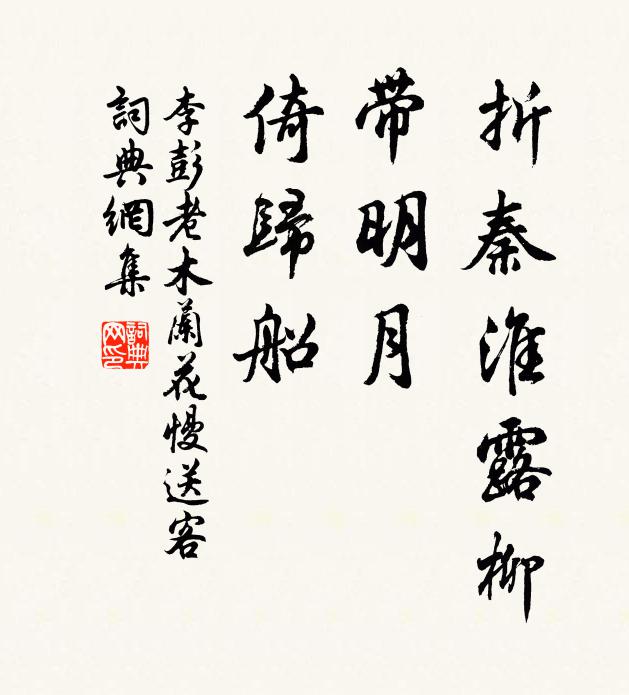 折秦淮露柳
带明月
倚歸船
李彭老木蘭花慢送客
詞典網集
詞典網印